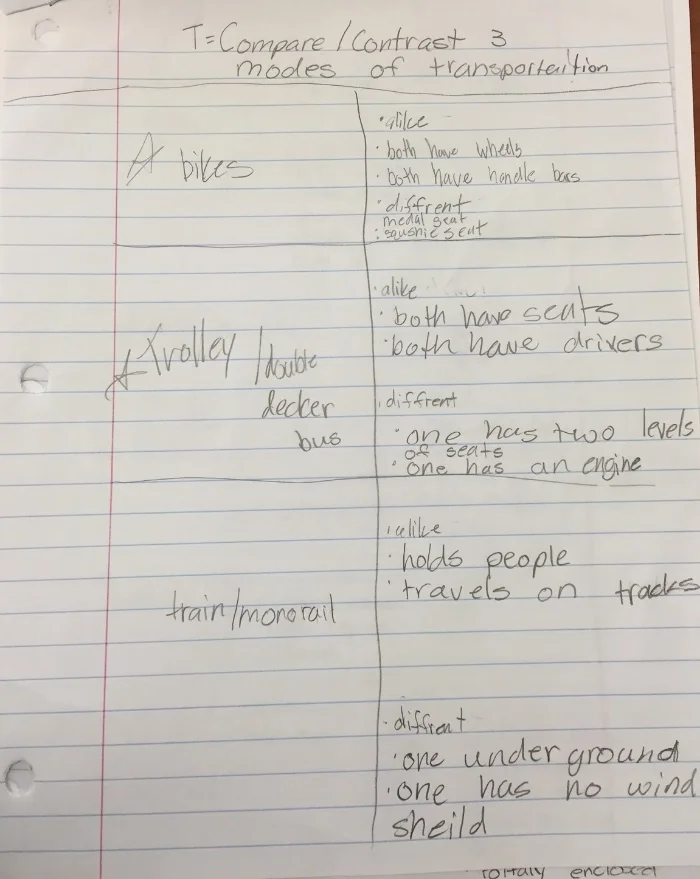 T=Compare/Contrast 3
modes of transportaition
A bikes
• alike
• both have wheels
• both have handle bars
• diffrent
medal seat
: squshie seat
trolley /double
decker
bus
• alike
• both have seats
• both have drivers
• diffrent
• one has two levels
of seats
• one has an engine
train/monorail
• alike
• holds people
• travels on tracks
• diffrent
• one under ground
• one has no wind
sheild
enclosed